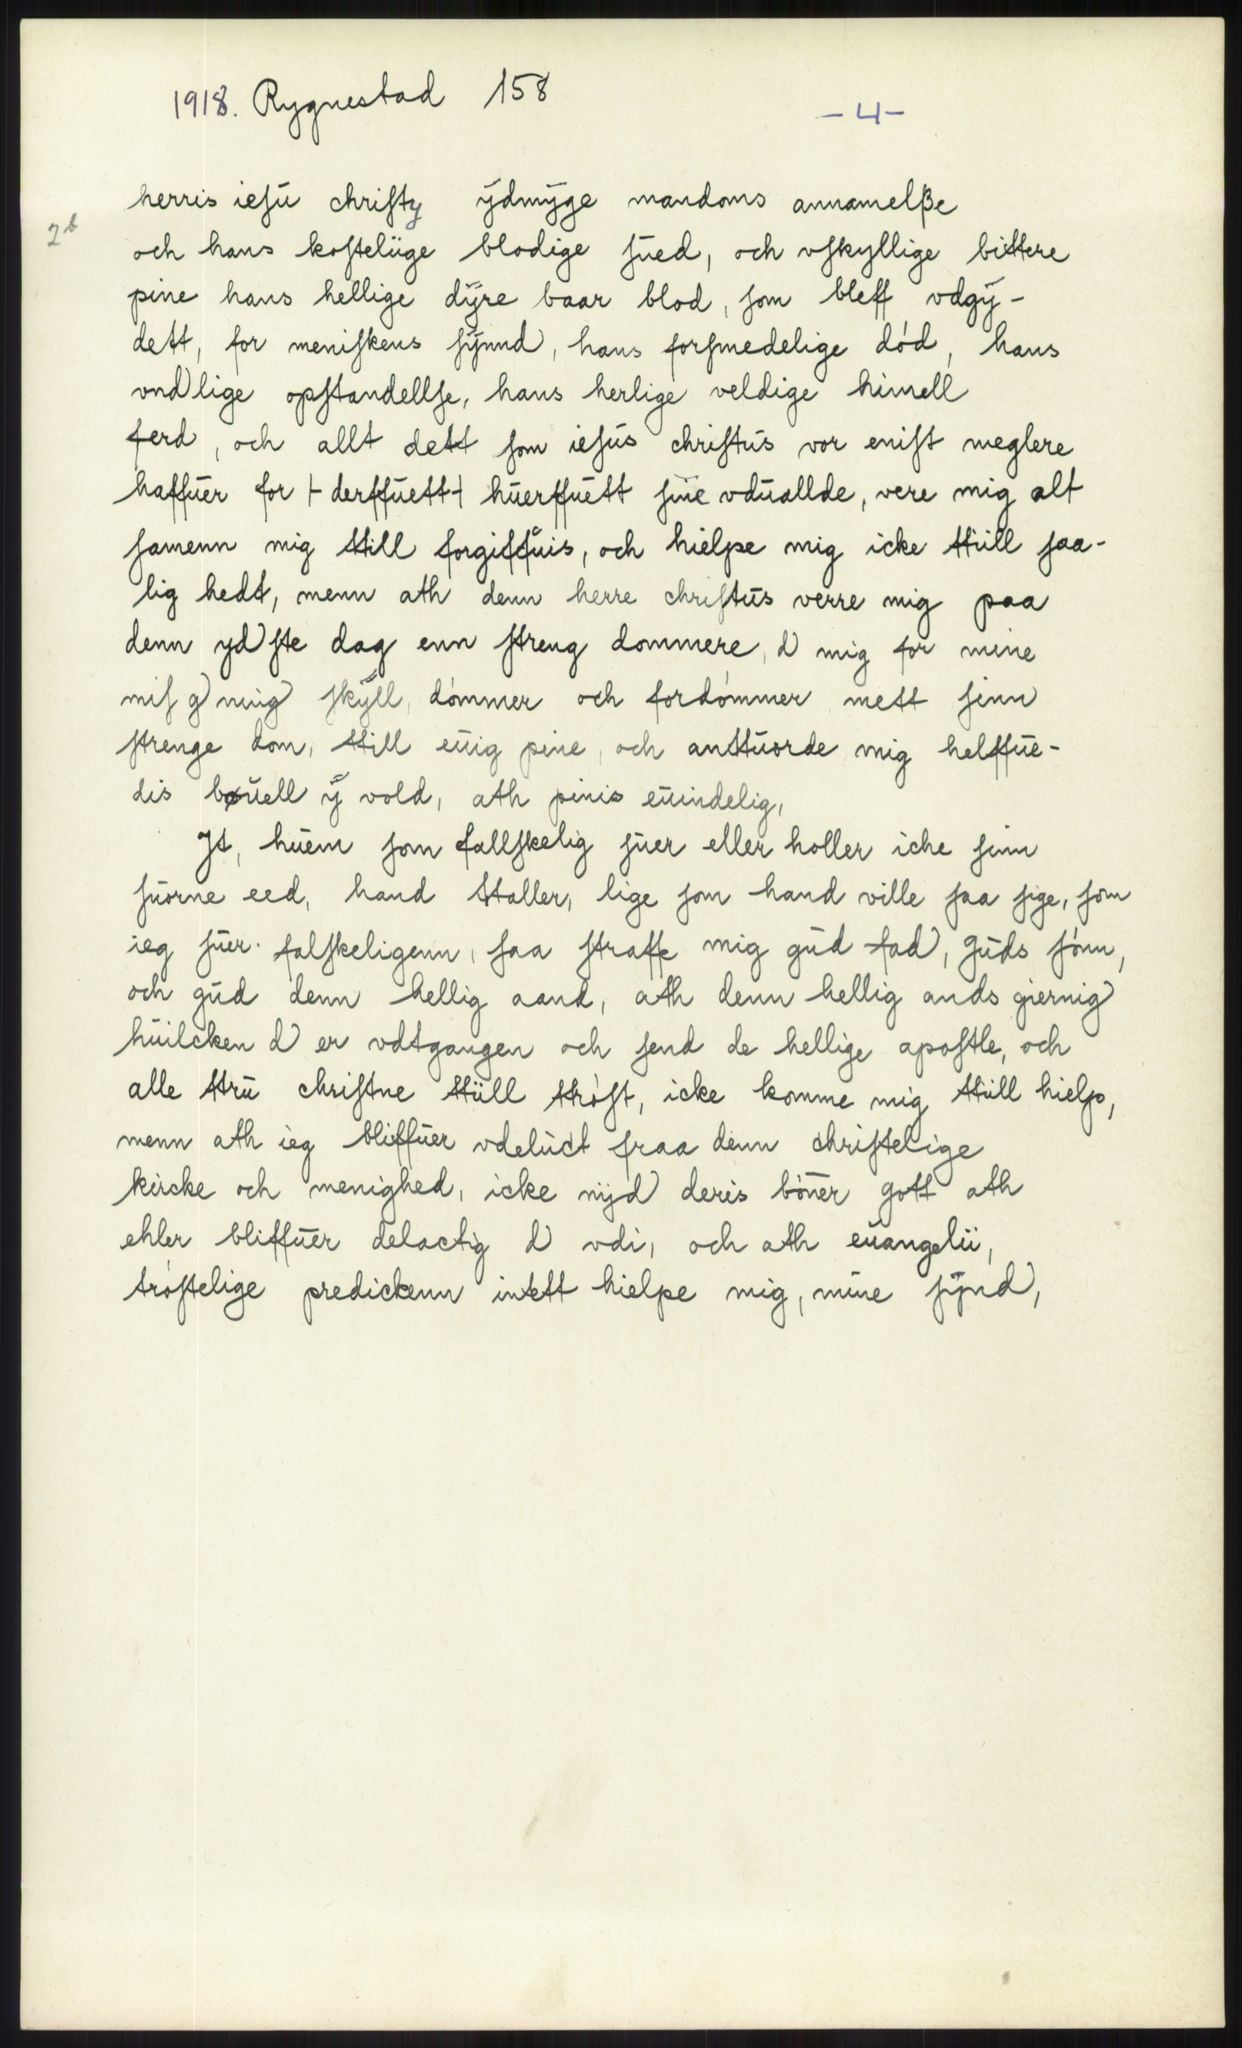 1918. Rygnestad 158
-4-
2b
herris iesu christy ÿdmÿge mandoms annamelße
och hans kosteliige blodige sued, och vskyllige bittere
pine hans hellige dÿre baar blod, som bleff vdgÿ-
dett, for meniskens sÿnnd, hans forsmedelige död, hans
vnd)lige opstandellse, hans herlige veldige himell
ferd, och allt dett som iesus christus vor enist meglere
haffuer for ⊢derffuett⊣ huerffuett siine vduallde, vere mig alt
samenn mig till forgiffuis, och hielpe mig icke tiill saa-
lig hedt, menn ath denn herre christus verre mig paa
denn yd)ste dag enn streng dommere, d) mig for mine
mis g) ning) skÿll, dömmer och fordömmer mett sinn
strenge dom, till euig pine, och anttuorde mig helffue-
dis bøuell ÿ vold, ath pinis euindelig,
It, huem som fallskelig suer eller holler iche sinn
suorne eed, hand taller, lige som hand ville saa sige, som
ieg suer falskeligenn, saa straffe mig gud fad), guds sönn,
och gud denn hellig aand, ath denn hellig ands giernig)
huilcken d) er vdtgangen och send de hellige apostle, och
alle tru christne tiill tröst, icke komme mig tiill hielp,
menn ath ieg bliffuer vdeluct fraa denn christelige
kircke och menighed, icke nÿd) deris böner gott ath
ehler bliffuer delactig d) vdi, och ath euangelii,
tröstelige predickenn intett hielpe mig, mine sÿnd),